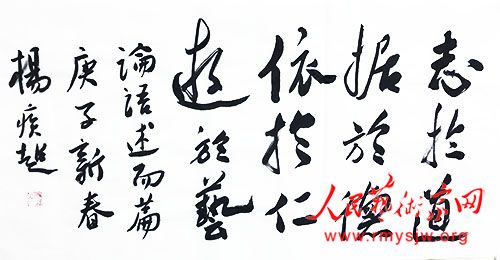 志於道
据於德
依於仁
遊於藝
論語述而篇
庚子新春
楊
人民藝術家网
www.rmysjw.org